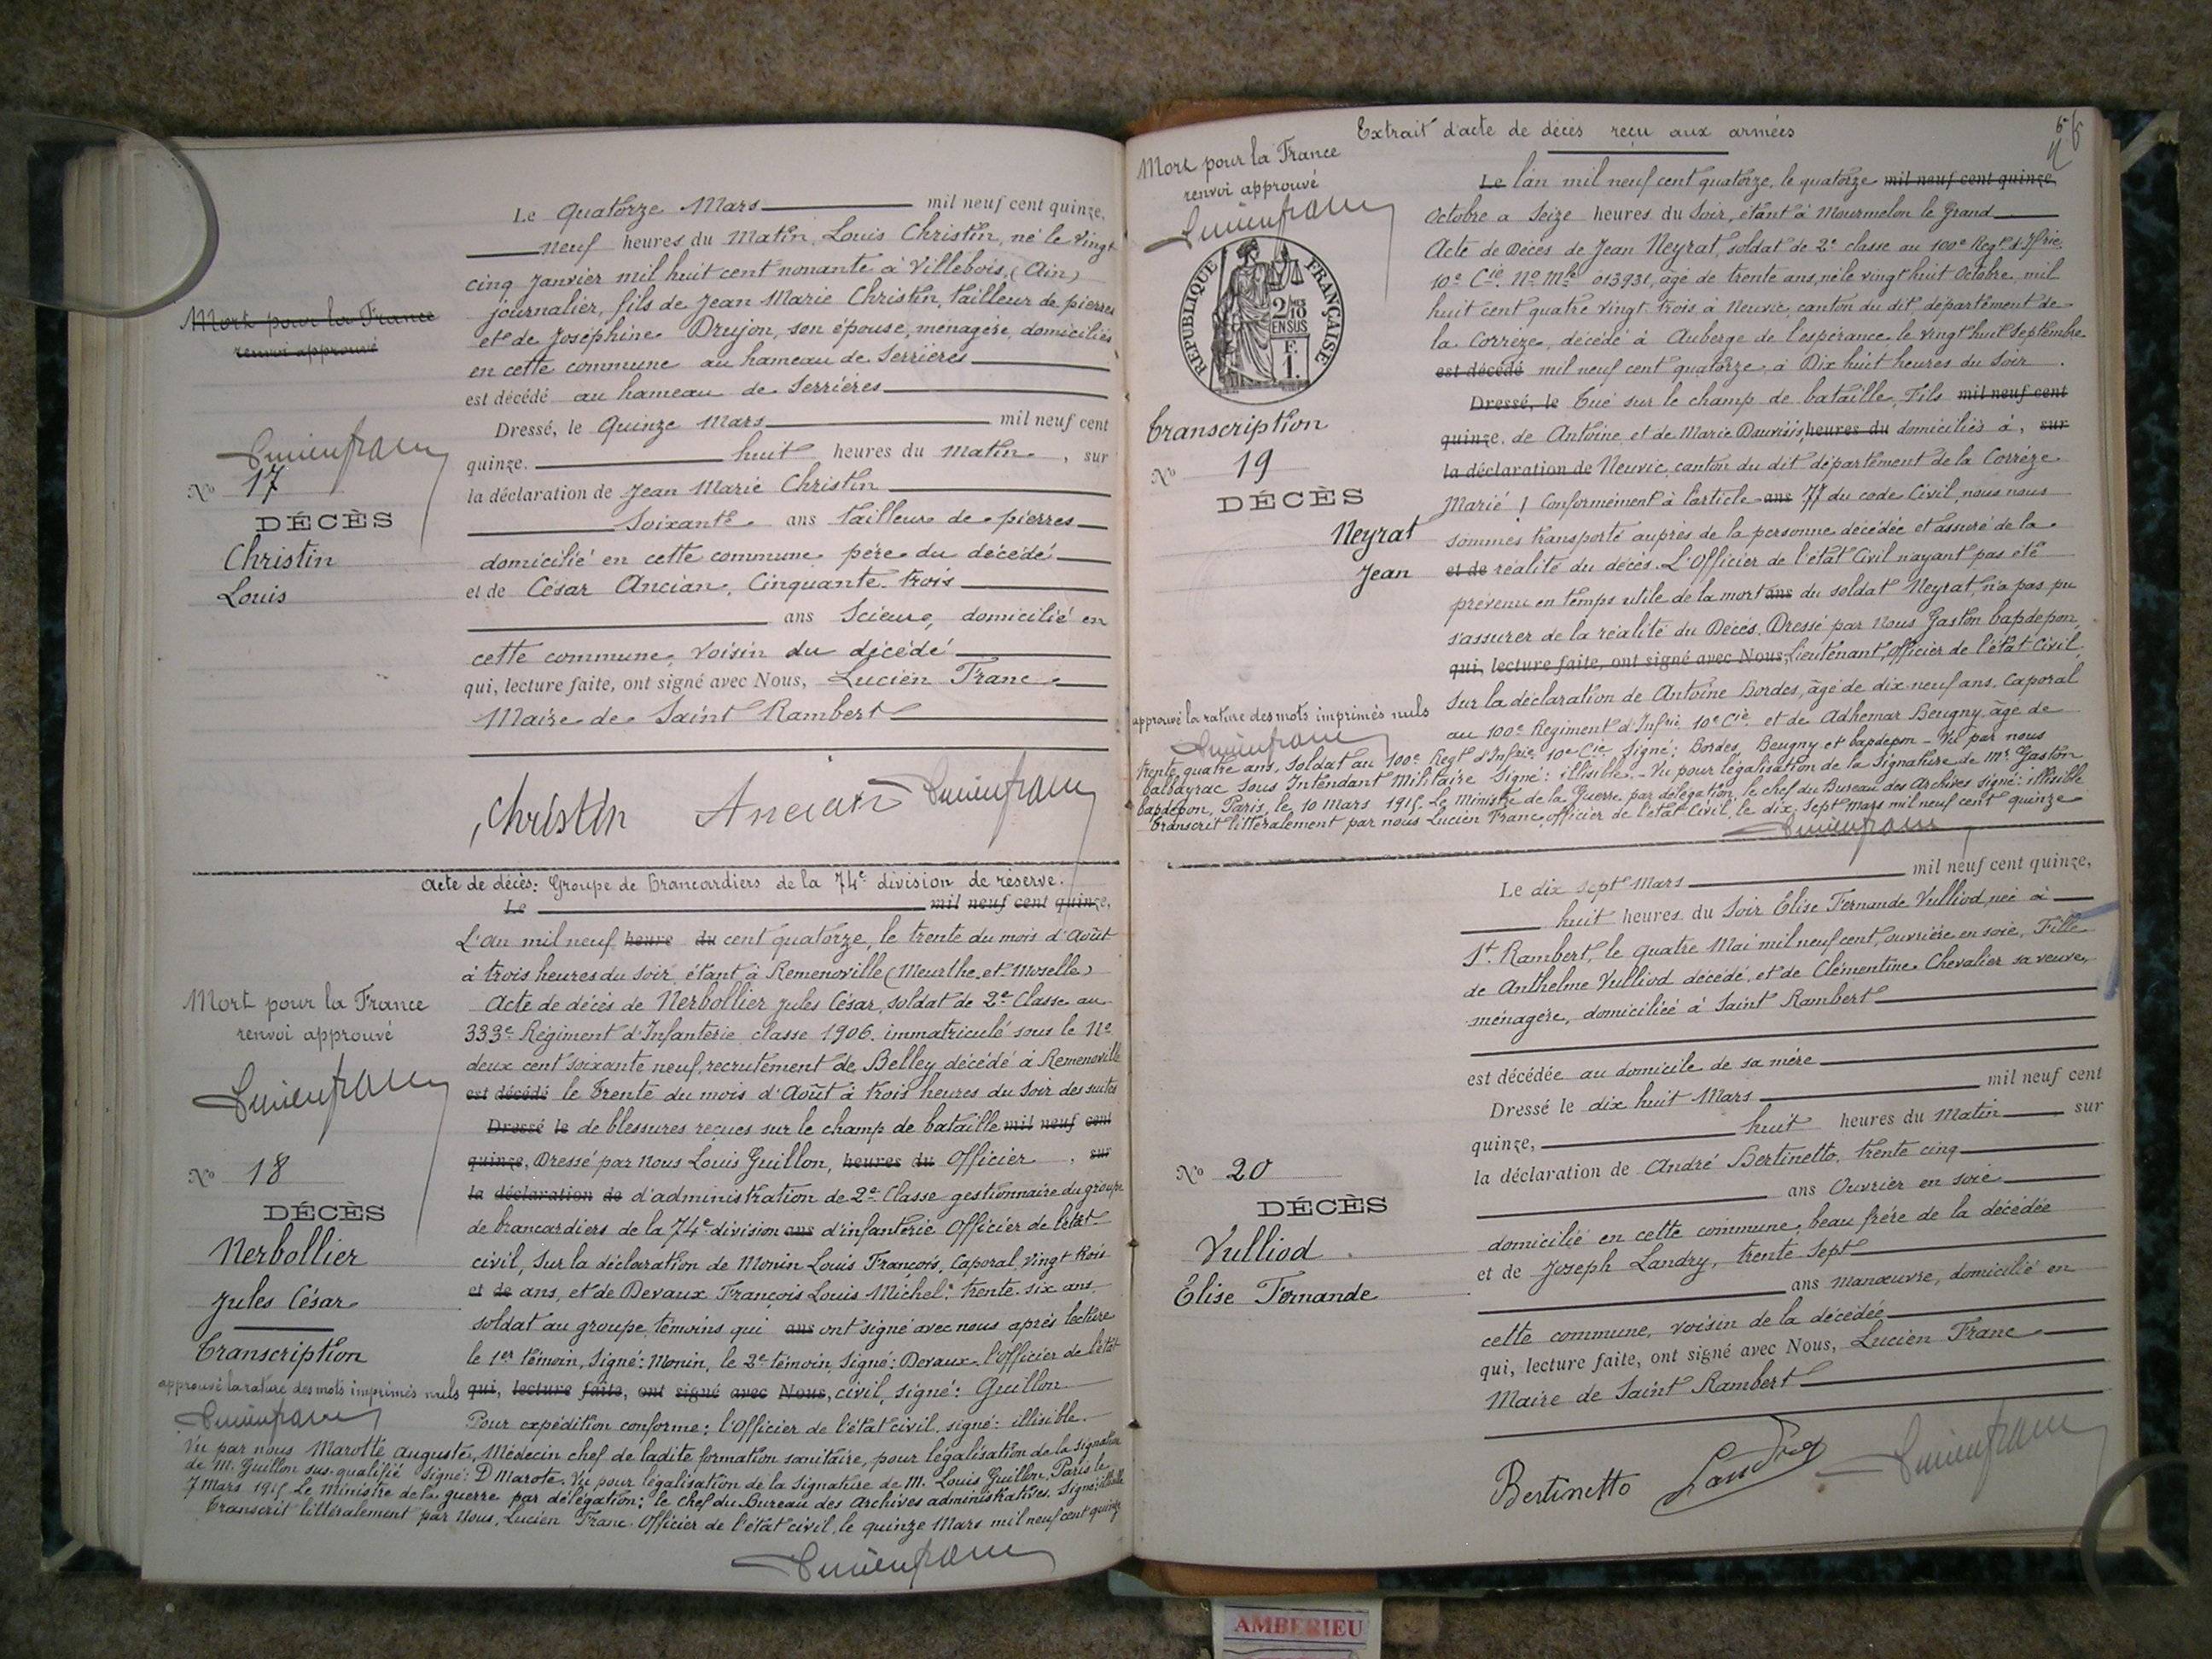 Le Quatorze Mars mil neuf cent quinze,
neuf heures du Matin, Louis Christin, né le vingt
cinq Janvier mil huit cent nonante à Villebois, (Ain)
journalier, fils de Jean Marie Christin, tailleur de pierres
et de Joséphine Drujon, son épouse, ménagère, domiciliés
en cette commune au hameau de Serrières
est décédé au hameau de Serrières
Dressé, le Quinze Mars mil neuf cent
quinze. huit heures du Matin, sur
la déclaration de Jean Marie Christin
Soixante ans tailleur de pierres
domicilié en cette commune père du décédé
et de César Ancian, Cinquante trois
ans Scieur, domicilié en
cette commune, voisin du décédé
qui, lecture faite, ont signé avec Nous, Lucien Franc
Maire de Saint Rambert
Christin Ancian Lucien franc
Mort pour la France
renvoi approuvé
Lucien franc
No 17
DÉCÈS
Christin
Louis
Acte de décès: Groupe de Brancardiers de la 74e division de réserve.
Le mil neuf cent quinze,
L'an mil neuf heure du cent quatorze, le trente du mois d'Août
à trois heures du soir, étant à Remenoville (Meurthe et Moselle)
Acte de décès de Nerbollier Jules César, soldat de 2e Classe au
333e Régiment d'Infanterie classe 1906. immatriculé sous le No
deux cent soixante neuf, recrutement de Belley décédé à Remenoville
est décédé le Trente du mois d'Août à trois heures du Soir des suites
Dressé le de blessures reçues sur le champ de bataille mil neuf cent
quinze, Dressé par Nous Louis Guillon, heures du Officier, sur
la déclaration de d'administration de 2e Classe gestionnaire du groupe
de brancardiers de la 74e division ans d'infanterie Officier de l'état
civil, Sur la déclaration de Monin Louis François, Caporal, vingt trois
et de ans, et de Devaux François Louis Michel, trente six ans,
soldat au groupe, témoins qui ans ont signé avec nous après lecture
le 1er témoin, Signé: Monin, le 2e témoin, Signé: Devaux. l'Officier de l'état
qui, lecture faite, ont signé avec Nous, civil, signé: Guillon
Pour expédition conforme: l'Officier de l'état civil, signé: illisible.
Vu par nous Marotte Auguste, Médecin chef de ladite formation sanitaire, pour légalisation de la signature
de M. Guillon sus-qualifié Signé: D Marote. Vu pour légalisation de la Signature de M. Louis Guillon. Paris le
7 Mars 1915 Le Ministre de la guerre par délégation: le chef du Bureau des Archives administratives. Signé: illisible
Transcrit littéralement par Nous, Lucien Franc. Officier de l'état civil, le quinze Mars mil neuf cent quinze
Lucien franc
Mort pour la France
renvoi approuvé
Lucien franc
No 18
DÉCÈS
Nerbollier
Jules César
Transcription
approuvé la rature des mots imprimés nuls
Lucien franc
Extrait d'acte de décès reçu aux armées
Mort pour la France
renvoi approuvé
Lucien franc
RÉPUBLIQUE FRANÇAISE
2/10
EN SUS
F.
1.
Transcription
No 19
DÉCÈS
Neyrat
Jean
approuvé la rature des mots imprimés nuls
Lucien franc
Le l'an mil neuf cent quatorze, le quatorze mil neuf cent quinze,
Octobre a Seize heures du Soir, étant à Mourmelon le Grand
Acte de Décès de Jean Neyrat, soldat de 2e classe au 100e Regt d'Ifrie,
10e Cie. No Mle 013931, âgé de trente ans, né le vingt huit Octobre mil
huit cent quatre vingt trois à Neuvic, canton du dit, département de
la Corrèze, décédé à Auberge de l'espérance, le vingt huit Septembre
est décédé mil neuf cent quatorze, à Dix huit heures du Soir.
Dressé, le Tué sur le champ de bataille, Fils mil neuf cent
quinze. de Antoine et de Marie heures du domiciliés à, sur
la déclaration de Neuvic canton du dit département de la Corrèze.
Marié! Conformément à l'article ans 77 du code Civil, nous nous
sommes transporté auprès de la personne décédée et assuré de la
et de réalité du décès. L'Officier de l'état Civil n'ayant pas été
prévenu en temps utile de la mort ans du soldat Neyrat, n'a pas pu
s'assurer de la réalité du Décès. Dressé par Nous Gaston Capdepon,
qui, lecture faite, ont signé avec Nous, lieutenant, officier de l'état Civil,
Sur la déclaration de Antoine Bordes, âgé de dix neuf ans, Caporal
au 100e Regiment d'Infrie 10e Cie, et de Adhemar Beugny âgé de
trente quatre ans, Soldat au 100e Regt d'Infrie 10e Cie Signé: Bordes, Beugny et Capdepon - Vu par nous
Sous Intendant Militaire Signé: illisible. - Vu pour légalisation de la Signature de Mr Gaston
Capdepon, Paris, le 10 Mars 1915. Le Ministre de la Guerre par délégation, le chef du Bureau des Archives signé: illisible
Transcrit littéralement par nous Lucien Franc, officier de l'état Civil, le dix Sept Mars mil neuf cent quinze
Lucien franc
Le dix sept Mars mil neuf cent quinze,
huit heures du Soir Elise Fernande Vulliod, née à
St. Rambert, le quatre Mai mil neuf cent, ouvrière en soie, Fille
de Anthelme Vulliod décédé, et de Clémentine Chevalier sa veuve,
ménagère, domiciliée à Saint Rambert
est décédée au domicile de sa mère
Dressé le dix huit Mars mil neuf cent
quinze, huit heures du Matin sur
la déclaration de André Bertinetto, trente cinq
ans Ouvrier en soie
domicilié en cette commune, beau frère de la décédée
et de Joseph Landry, trente sept
ans manœuvre, domicilié en
cette commune, voisin de la décédée
qui, lecture faite, ont signé avec Nous, Lucien Franc
Maire de Saint Rambert
Bertinetto Landry Lucien franc
No 20
DÉCÈS
Vulliod
Elise Fernande
AMBERIEU